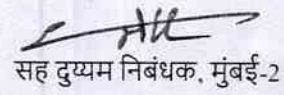 सह दुय्यम निबंधक, मुंबई-2